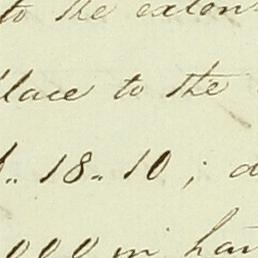 to the exten
lace to the
.. 18.. 10 ;
000 in han